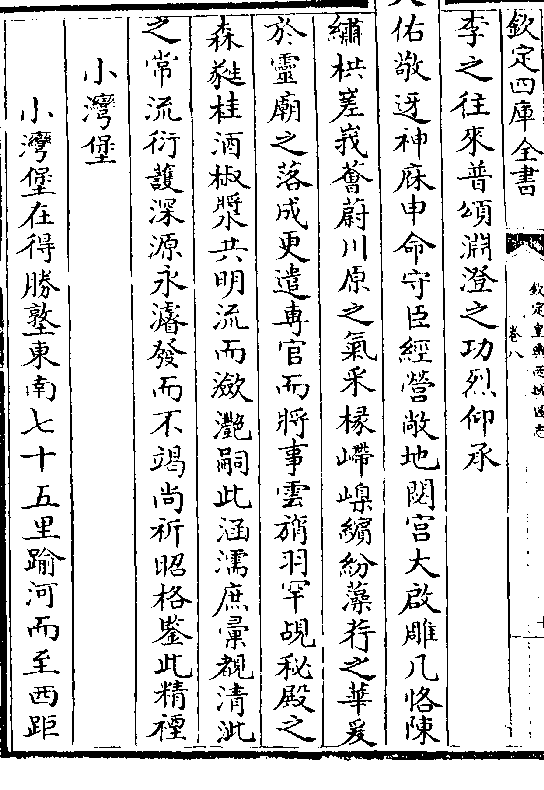 欽定四庫全書
欽定皇輿西域圖志
卷八
李之往來普頌淵澄之功烈仰承
天佑敬迓神庥申命守臣經營敞地閟宫大啟雕几恪陳
繡栱嵳峩薈蔚川原之氣采椽嵽嵲繽紛藻荇之華爰
於靈廟之落成更遣専官而將事雲旓羽罕覘秘殿之
森㲯桂酒椒漿共明流而瀲灔嗣此涵濡庶彚覩清泚
之常流衍護深源永濬發而不竭尚祈昭格鑒此精禋
小灣堡
小灣堡在得勝墪東南七十五里踰河而至西距